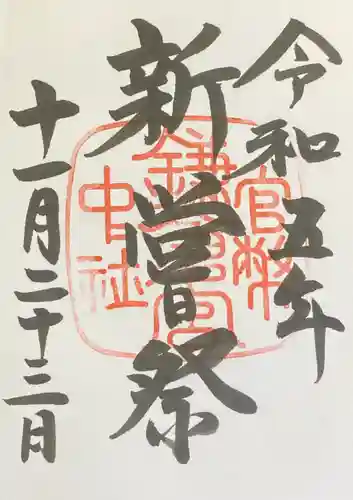 令和五年
新嘗祭
十一月二十三日
官幣
鎌倉宮
中社